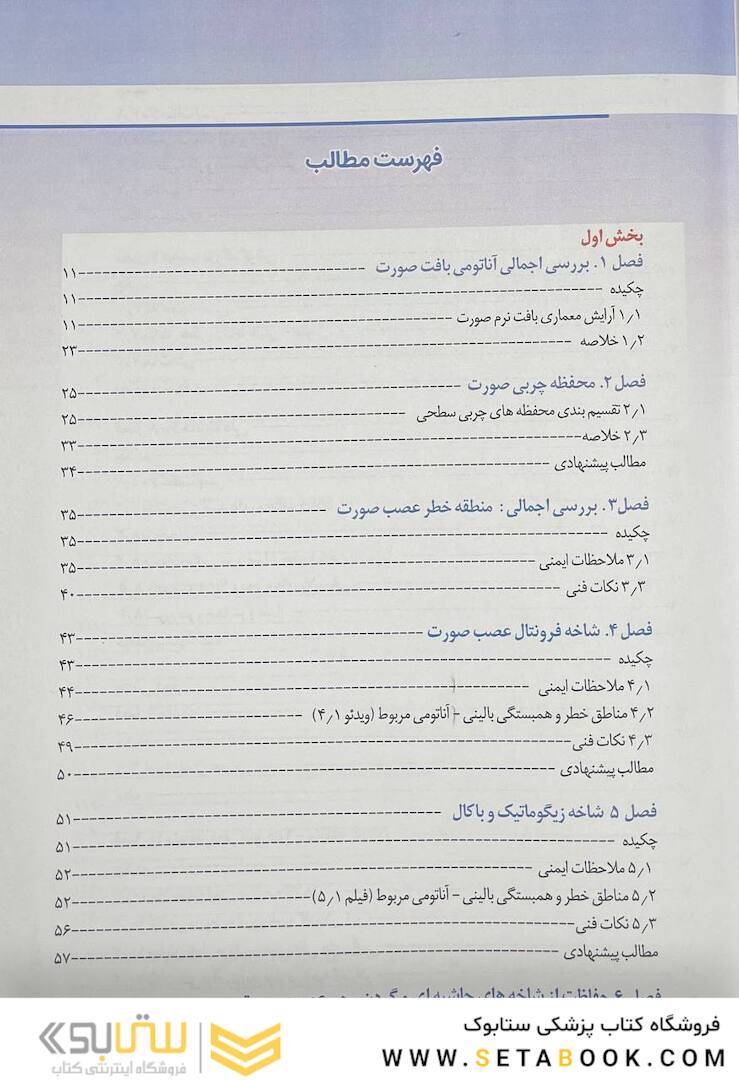 فهرست مطالب
بخش اول
فصل ۱. بررسی اجمالی آناتومی بافت صورت ------------------------------------ ۱۱
چکیده ------------------------------------ ۱۱
۱٫۱ آرایش معماری بافت نرم صورت ------------------------------------ ۱۱
۱٫۲ خلاصه ------------------------------------ ۲۳
فصل ۲. محفظه چربی صورت ------------------------------------ ۲۵
۲٫۱ تقسیم بندی محفظه های چربی سطحی ------------------------------------ ۲۵
۲٫۳ خلاصه ------------------------------------ ۳۳
مطالب پیشنهادی ------------------------------------ ۳۴
فصل۳. بررسی اجمالی: منطقه خطر عصب صورت ------------------------------------ ۳۵
چکیده ------------------------------------ ۳۵
۳٫۱ ملاحظات ایمنی ------------------------------------ ۳۵
۳٫۳ نکات فنی ------------------------------------ ۴۰
فصل ۴. شاخه فرونتال عصب صورت ------------------------------------ ۴۳
چکیده ------------------------------------ ۴۳
۴٫۱ ملاحظات ایمنی ------------------------------------ ۴۴
۴٫۲ مناطق خطر و همبستگی بالینی - آناتومی مربوط (ویدئو ۴٫۱) ------------------------------------ ۴۶
۴٫۳ نکات فنی ------------------------------------ ۴۹
مطالب پیشنهادی ------------------------------------ ۵۰
فصل ۵ شاخه زیگوماتیک و باکال ------------------------------------ ۵۱
چکیده ------------------------------------ ۵۱
۵٫۱ ملاحظات ایمنی ------------------------------------ ۵۲
۵٫۲ مناطق خطر و همبستگی بالینی - آناتومی مربوط (فیلم ۵٫۱) ------------------------------------ ۵۲
۵٫۳ نکات فنی ------------------------------------ ۵۶
مطالب پیشنهادی ------------------------------------ ۵۷
فصل ۶ حفاظت از شاخه های حاشیه ای و گردنی
فروشگاه کتاب پزشکی ستابوک
WWW.SETABOOK.COM
ستابوک
فروشگاه اینترنتی کتاب